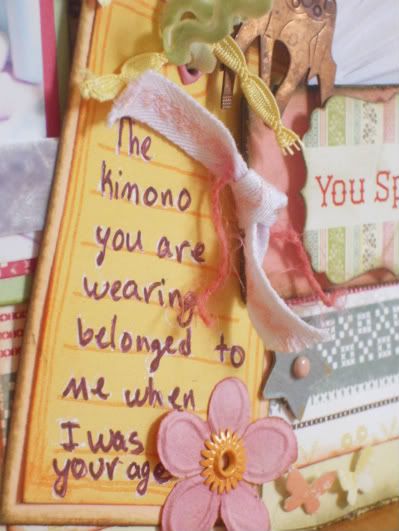 The
Kimono
you are
wearing
belonged to
me when
I was
your age
You Sp